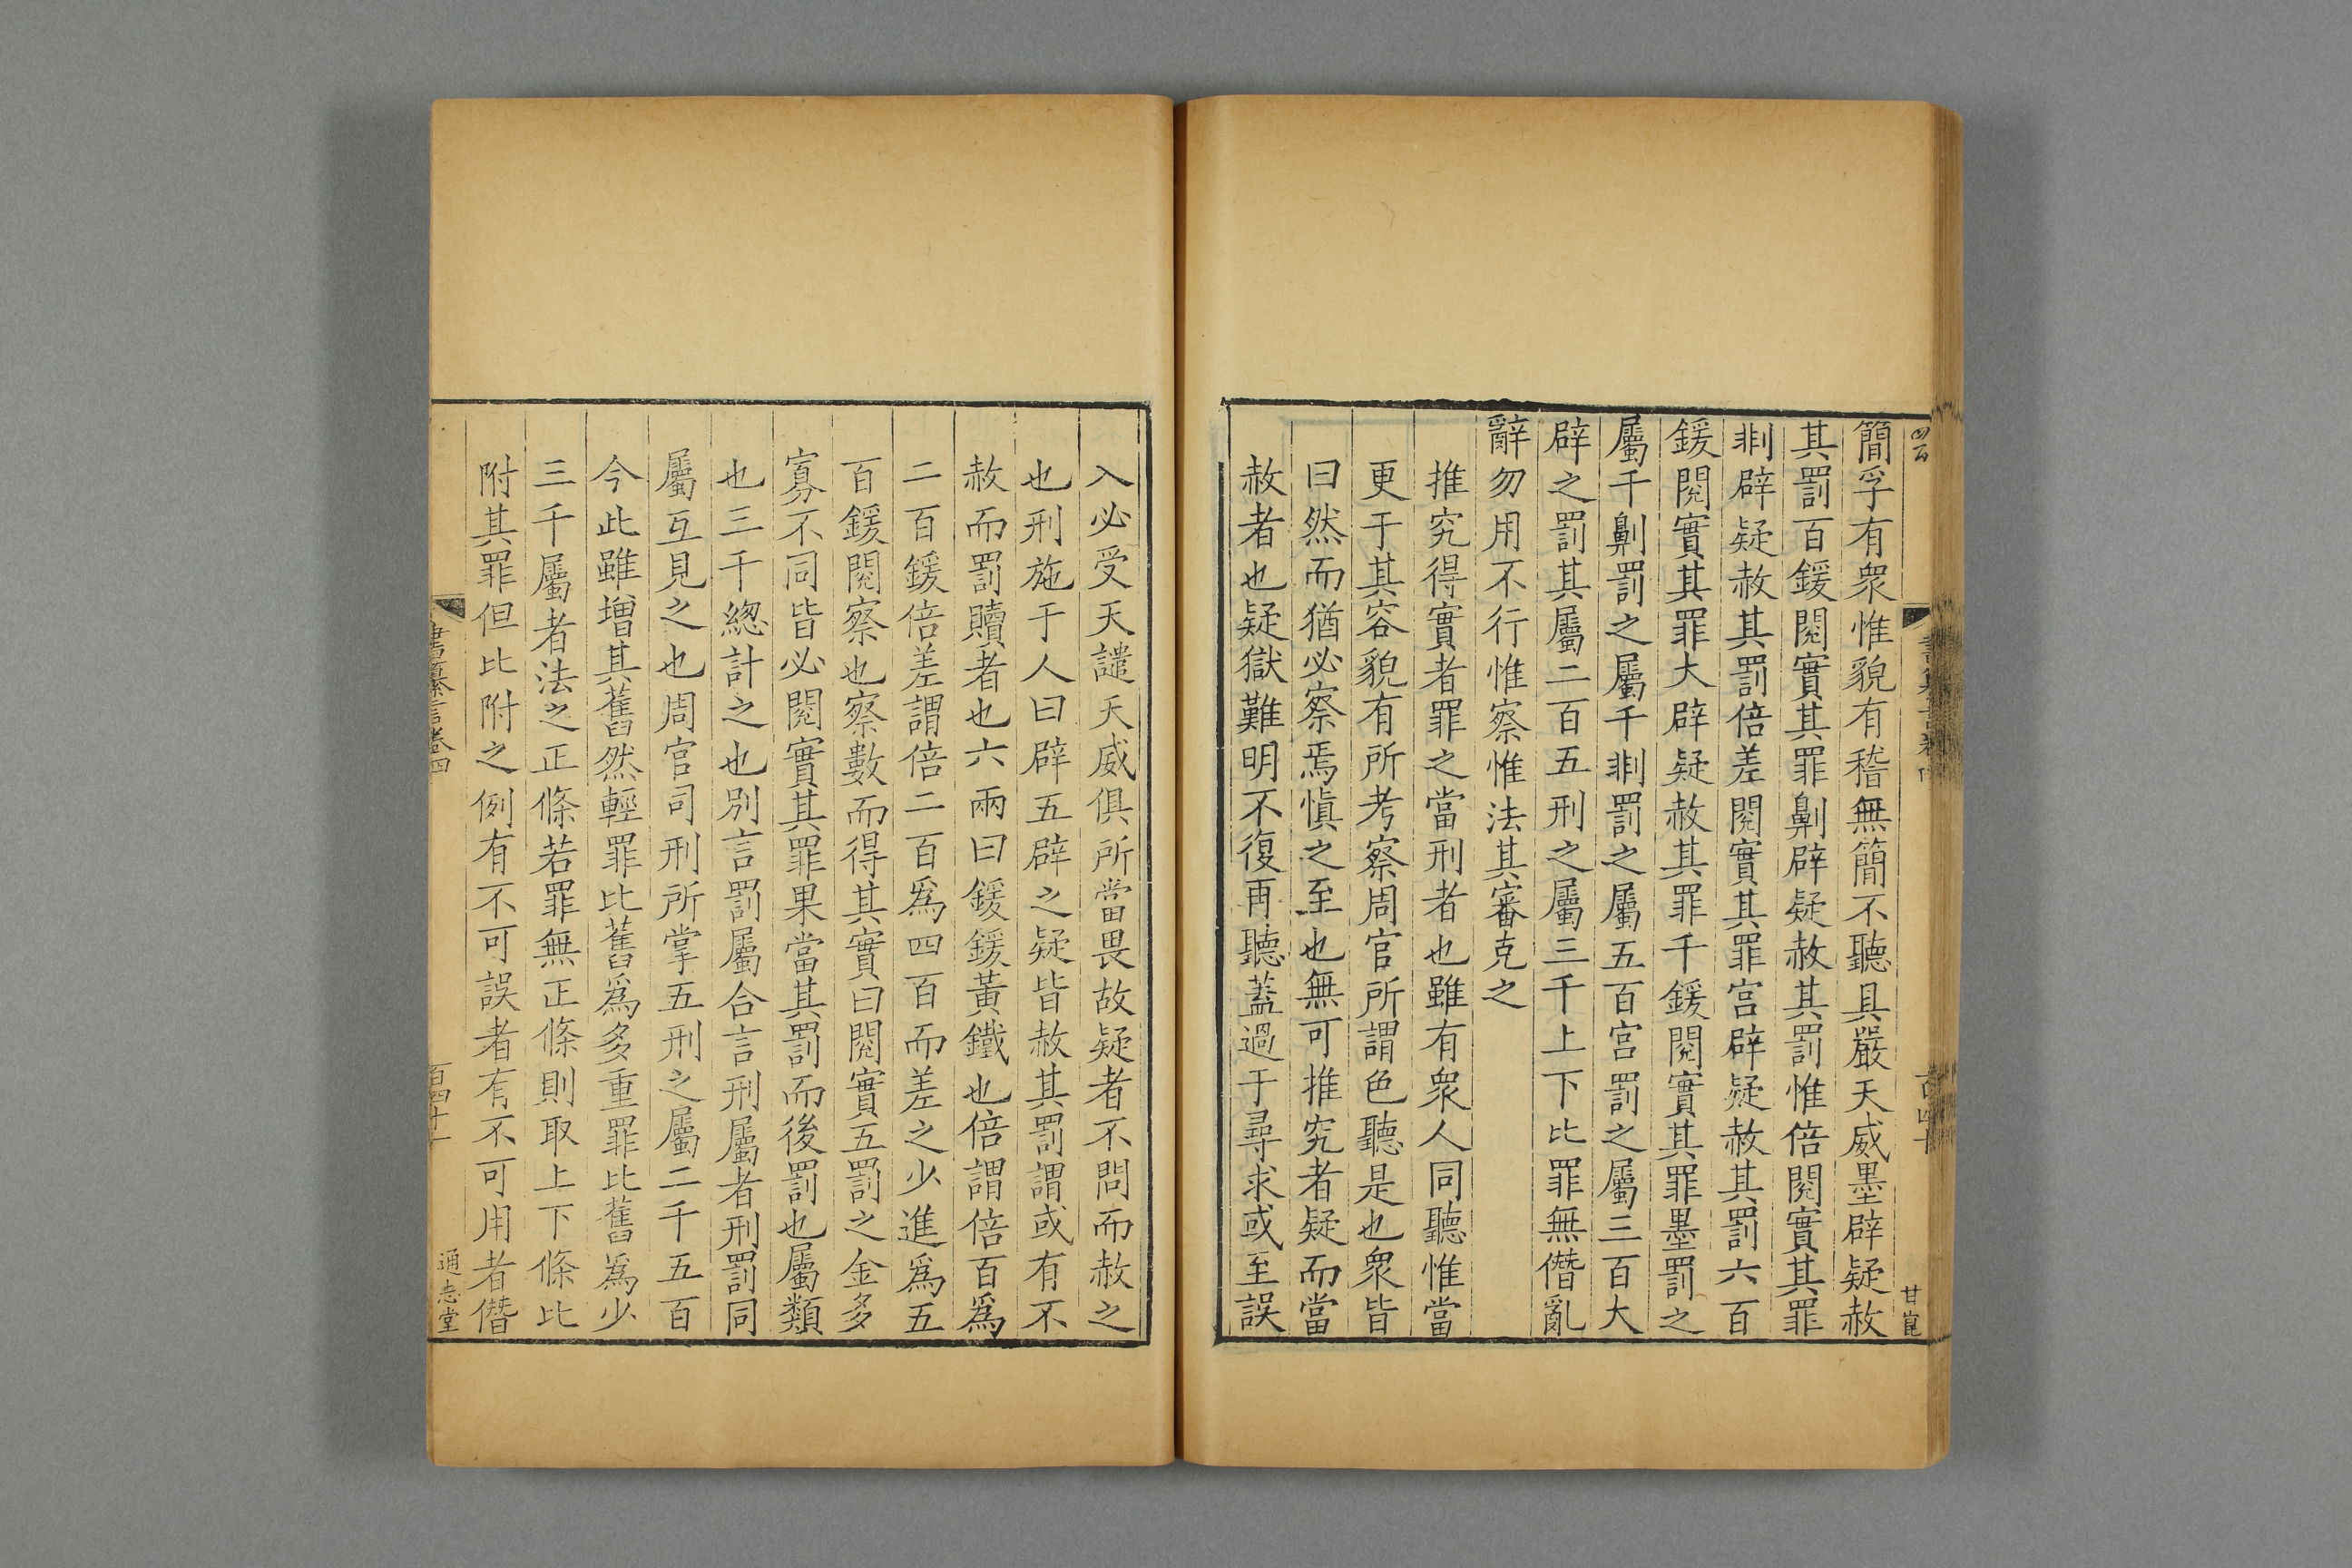 簡孚有衆惟貌有稽無簡不聽具嚴天威墨辟疑赦
其罰百鍰閱實其罪劓辟疑赦其罰惟倍閱實其罪
剕辟疑赦其罰倍差閱實其罪宮辟疑赦其罰六百
鍰閱實其罪大辟疑赦其罪千鍰閱實其罪墨罰之
屬千劓罰之屬千剕罰之屬五百宮罰之屬三百大
辟之罰其屬二百五刑之屬三千上下比罪無僭亂
辭勿用不行惟察惟法其審克之
推究得實者罪之當刑者也雖有衆人同聽惟當
更于其容貌有所考察周官所謂色聽是也衆皆
曰然而猶必察焉慎之至也無可推究者疑而當
赦者也疑獄難明不復再聽蓋過于尋求或至誤
入必受天譴天威俱所當畏故疑者不問而赦之
也刑施于人曰辟五辟之疑皆赦其罰謂或有不
赦而罰贖者也六兩曰鍰鍰黃鐵也倍謂倍百爲
二百鍰倍差謂倍二百爲四百而差之少進爲五
百鍰閱察也察數而得其實曰閱實五罰之金多
寡不同皆必閱實其罪果當其罰而後罰也屬類
也三千總計之也別言罰屬合言刑屬者刑罰同
屬互見之也周官司刑所掌五刑之屬二千五百
今此雖增其舊然輕罪比舊爲多重罪比舊爲少
三千屬者法之正條若罪無正條則取上下條比
附其罪但比附之例有不可誤者有不可用者僭
書纂言卷四
百四十一
通志堂